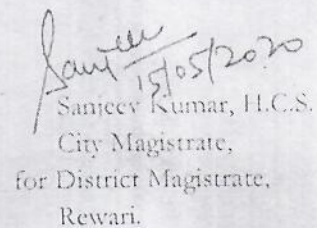 Sanjeev
15/05/2020
Sanjeev Kumar, H.C.S.
City Magistrate,
for District Magistrate,
Rewari.